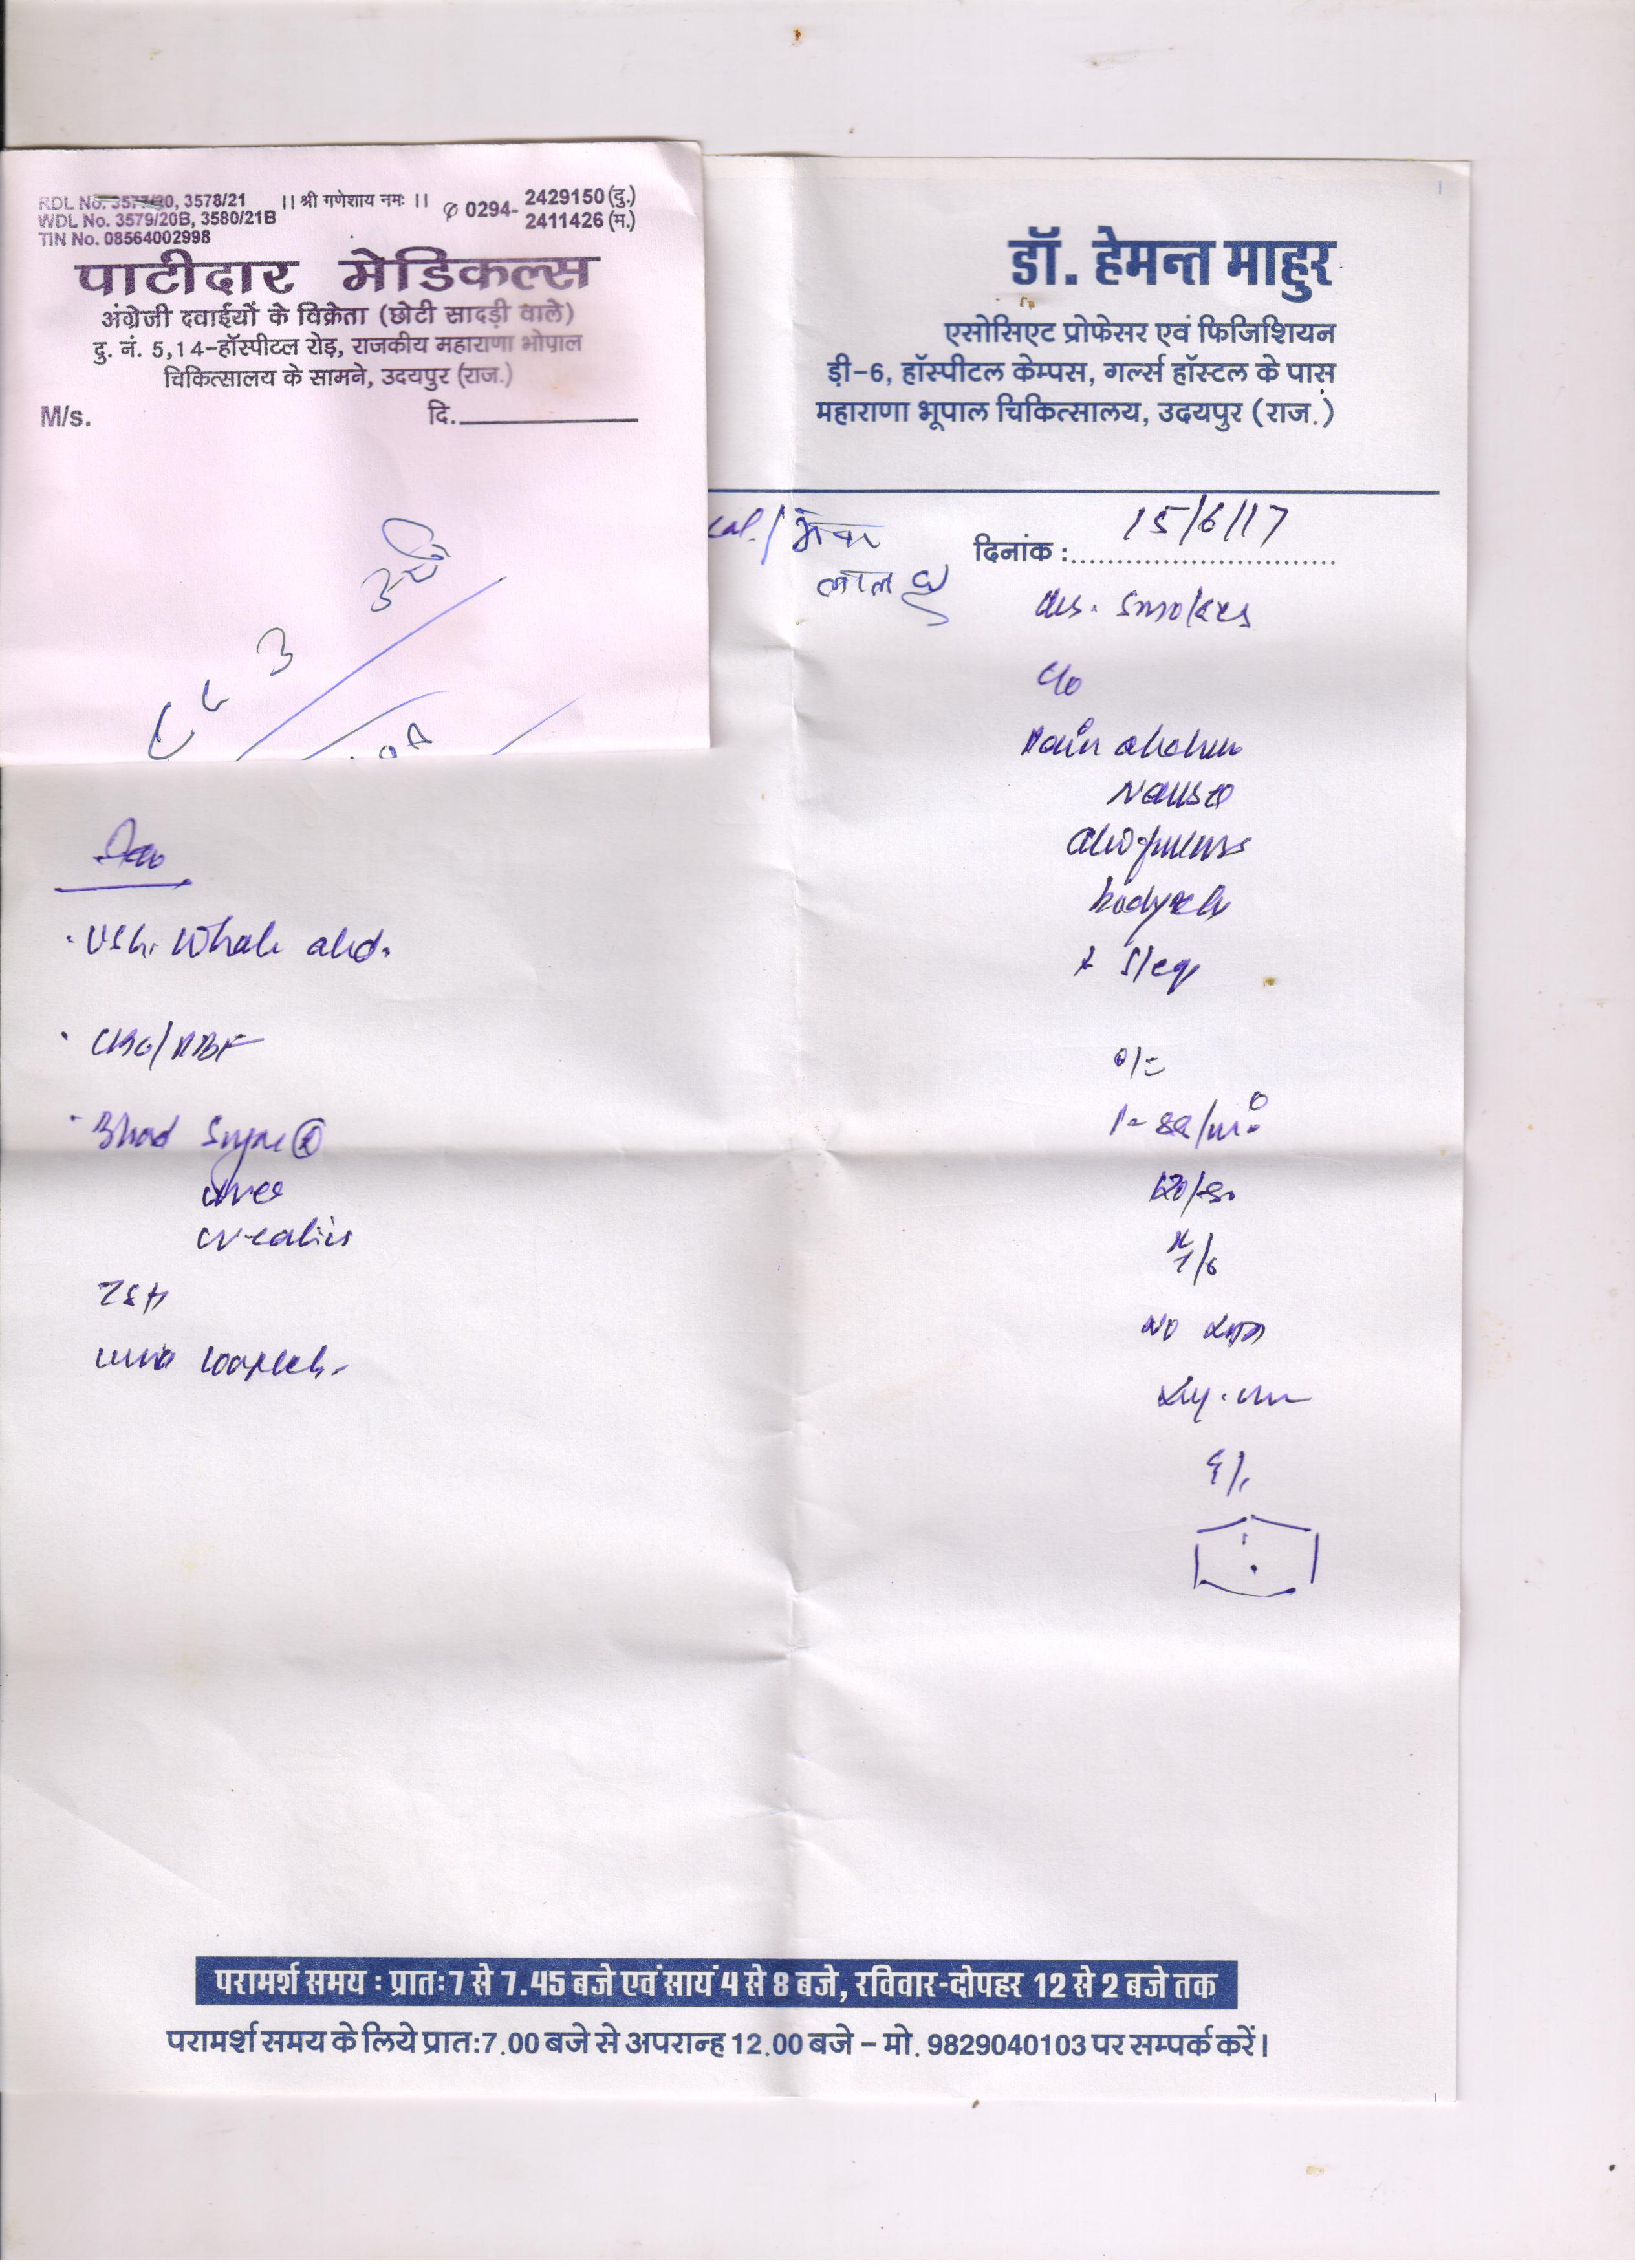 RDL No. 3577/20, 3578/21
WDL No. 3579/20B, 3580/21B
TIN No. 08564002998
।। श्री गणेशाय नमः ।।
✆ 0294- 2429150 (दु.)
2411426 (म.)
पाटीदार मेडिकल्स
अंग्रेजी दवाईयों के विक्रेता (छोटी सादड़ी वाले)
दु. नं. 5,14-हॉस्पीटल रोड़, राजकीय महाराणा भोपाल
चिकित्सालय के सामने, उदयपुर (राज.)
M/s. दि.
डॉ. हेमन्त माहुर
एसोसिएट प्रोफेसर एवं फिजिशियन
ड़ी-6, हॉस्पीटल केम्पस, गर्ल्स हॉस्टल के पास
महाराणा भूपाल चिकित्सालय, उदयपुर (राज.)
दिनांक : 15/6/17
लाल
smokes
c/o
Pain abdomen
Nausea
bodyache
Sleep
o/e
120/80
NO
USG. Whole abd.
CBC/PBF
Blood Sugar
urea
creatinin
TSH
urine complete
परामर्श समय : प्रातः 7 से 7.45 बजे एवं सायं 4 से 8 बजे, रविवार-दोपहर 12 से 2 बजे तक
परामर्श समय के लिये प्रात:7.00 बजे से अपरान्ह 12.00 बजे – मो. 9829040103 पर सम्पर्क करें।